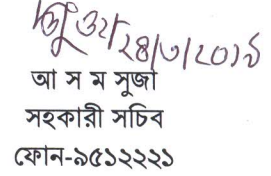 ২৪/৩/২০১৯
আ স ম সুজা
সহকারী সচিব
ফোন-৯৫১২২২১